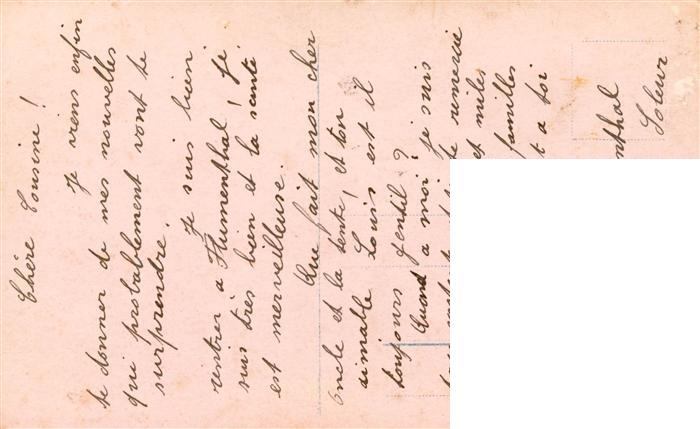 Chère Cousine!
Je viens enfin
te donner de mes nouvelles
qui probablement vont te
surprendre.
Je suis bien
rentrier à Flumenthal! Je
suis très bien et la santé
est merveilleuse.
Que fait mon cher
Oncle et la tente et ton
aimable Louis! est il
toujours gentil?
Quand a moi? je suis
te remercie
et milles
familles
t a toi
nthal
Soleur